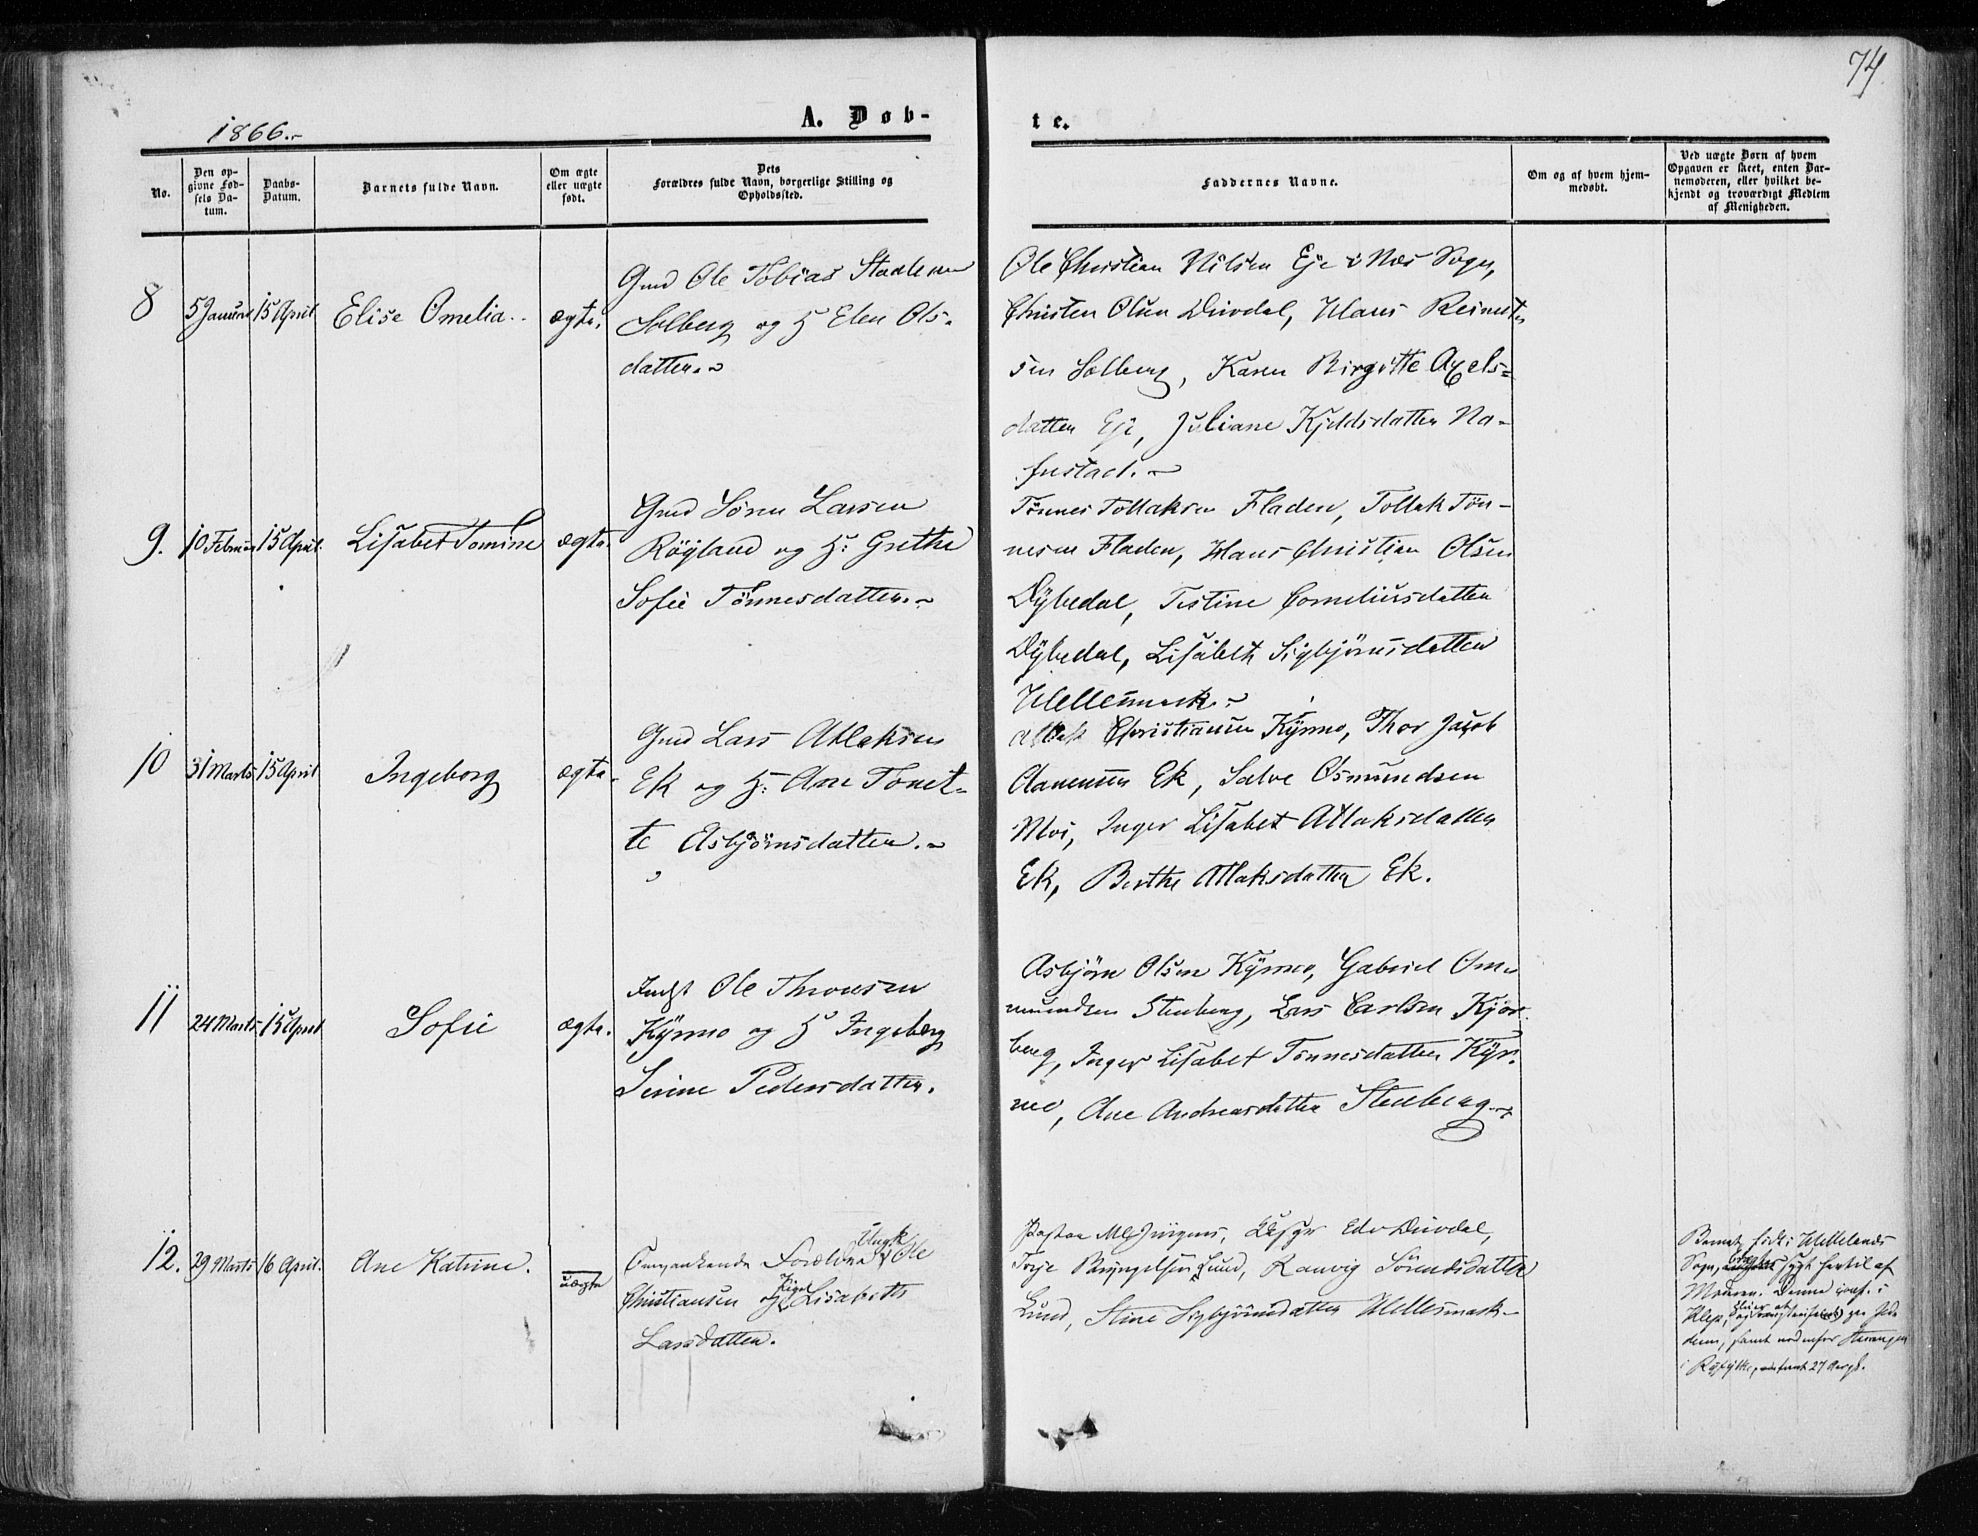 74.
1866.-
A. Døb-
te.
No.
Den op-
givne Fød-
sels Da-
tum.
Daabs-
Datum.
Barnets fulde Navn.
Om ægte
eller uægte
født.
Dets
Forældres fulde Navn, borgerlige Stilling og
Opholdssted.
Faddernes Navne.
Om og af hvem hjem-
medøbt.
Ved uægte Børn af hvem
Opgaven er skeet, enten Bar-
nemoderen, eller hvilket be-
kjendt og troværdigt Medlem
af Menigheden.
8
5 Januar
15 April
Elise Omelia.
ægte.
Gmd Ole Tobias
Solberg og H Elen Ols-
datter.
Ole Christian Nilsen Eje i Nes Sogn,
Christen Olsen Duvdal, Hans Reinert-
sen Solberg, Karen Birgitte Axels-
datten Eje, Juliane Kjeldsdatten Na-
fustad.
9.
10 Februar
15 April.
Lisabet Tomine
ægte.
Gmd Sören Larsen
Röyland og H: Grethe
Sofie Tönnesdatter.
Tönnes Tollaksen Fladen, Tollak Tön-
nesen Fladen, Hans Christian Olsen
Dybedal, Testine Corneliusdatten
Dybedal, Lisabeth Sigbjörnsdatten
Hellesmark.
10
31 Marts
15 April
Ingeborg
ægte.
Gmd Lars Atlaksen
Ek og H: Ane Tonet-
te Asbjörnsdatten.
Atlak Christiansen Kymo, Thor Jacob
Aanensen Ek, Salve Osmundsen
Moi, Inger Lisabet Atlaksdatten
Ek, Berthe Atlaksdatten Ek.
11
24 Marts
15 April
Sofie
ægte.
Indst Ole Thronsen
Kymo og H Ingeborg
Serine Pedersdatten.
Asbjörn Olsen Kymo, Gabriel Om-
mundsen Stenberg, Lars Carlsen Kjör-
berg, Inger Lisabet Tönnesdatten Kyr-
mo, Ane Andreasdatter Stenberg
12.
29 Marts
16 April.
Ane Katrine.
uægte
Omvankende Forældre Ungk Ole
Christiansen og Pigen Lisabeth
Larsdatten.
Pastor Jürgens, Edv Duvdal,
Torje Bryngelsen Lund, Ranvig Sörensdatten
Lund, Stine Sigbjörnsdatten Hellesmark
Barnet født i Hellelands
Sogn, sygt hertil af
Moderen. Denne conf. i
Klep,
i Ryfylke, 27 Aar gl.